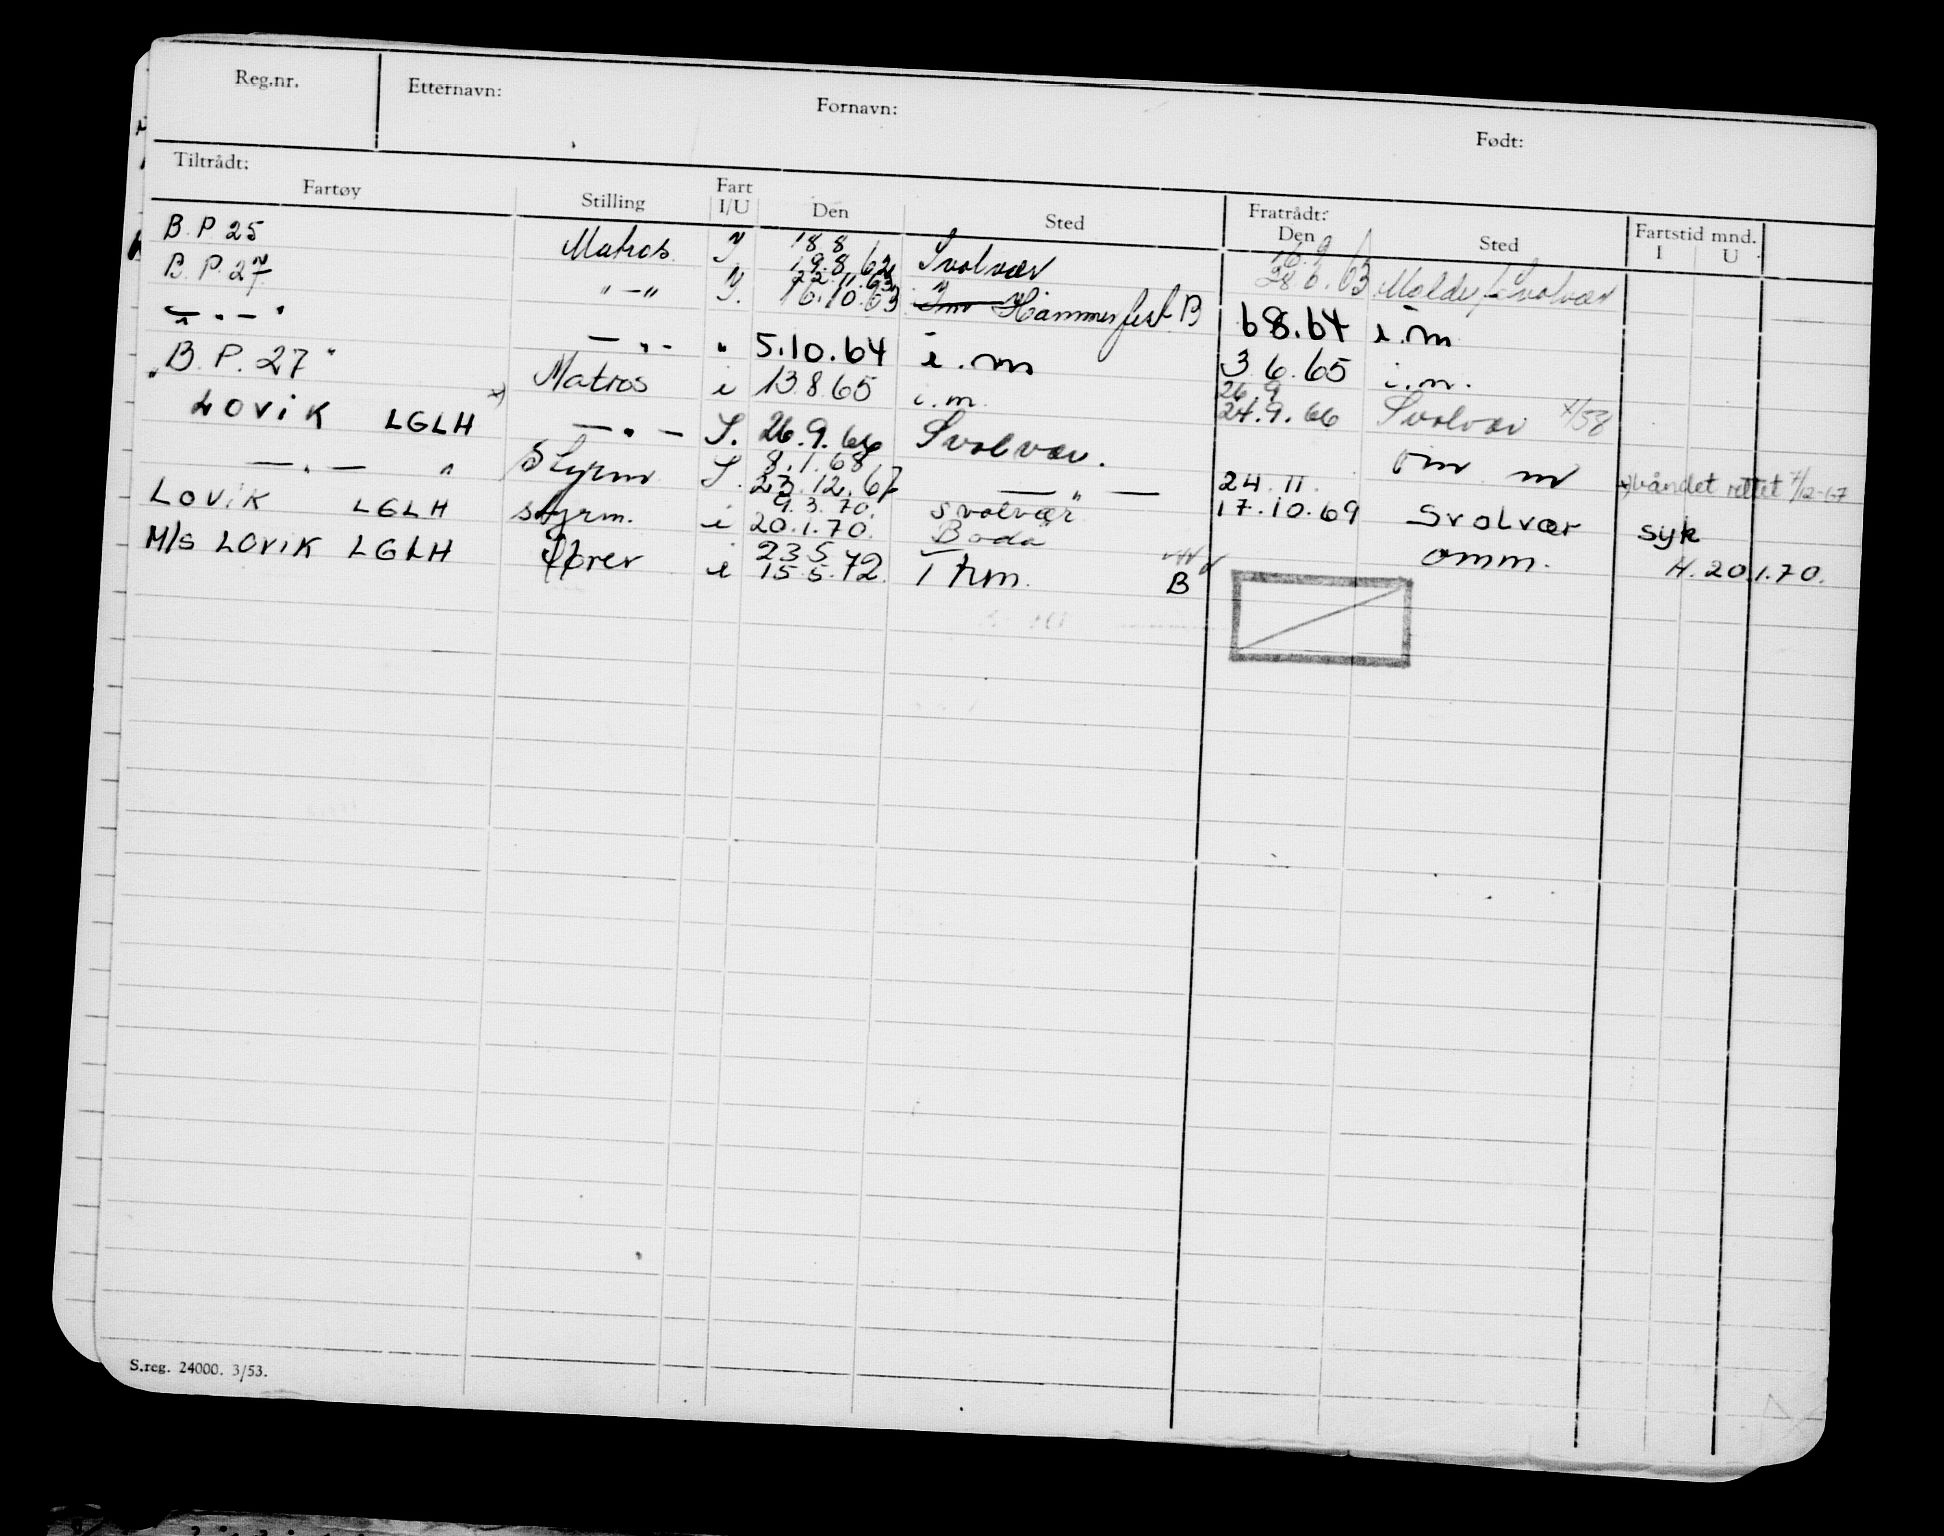 Reg.nr. Etternavn: Fornavn: Født:
Tiltrådt: Fratrådt:
Fartøy Stilling Fart I/U Den Sted Den Sted Fartstid mnd. I U
B. P. 25 Matros 18 8 19.8.62 Svolvær 16.9 28 6.63 Molde / Svolvær
B. P. 27 " — " 22.11.63 16.10.63 Hammerfest B 6 8.64 i.m
— " — " — " — " 5.10.64 i.m 3 6.65 i.m.
"B. P. 27" Matros i 13.8.65 i.m. 26.9 24.9.66 Svolvær x/58
LOVIK LGLH x) — " — I. 26.9.66 Svolvær. om m x) håndet rettet 4/12-67
— " — " Styrm I. 8.1.68 23.12.67 — " — 24.11. 17.10.69 Svolvær syk
LOVIK LGLH styrm. i 9.3.70. 20.1.70. Svolvær Bodø omm. H. 20.1.70.
M/S LOVIK LGLH fører i 23 5 15.5.72. Thm. B
S.reg. 24000. 3/53.